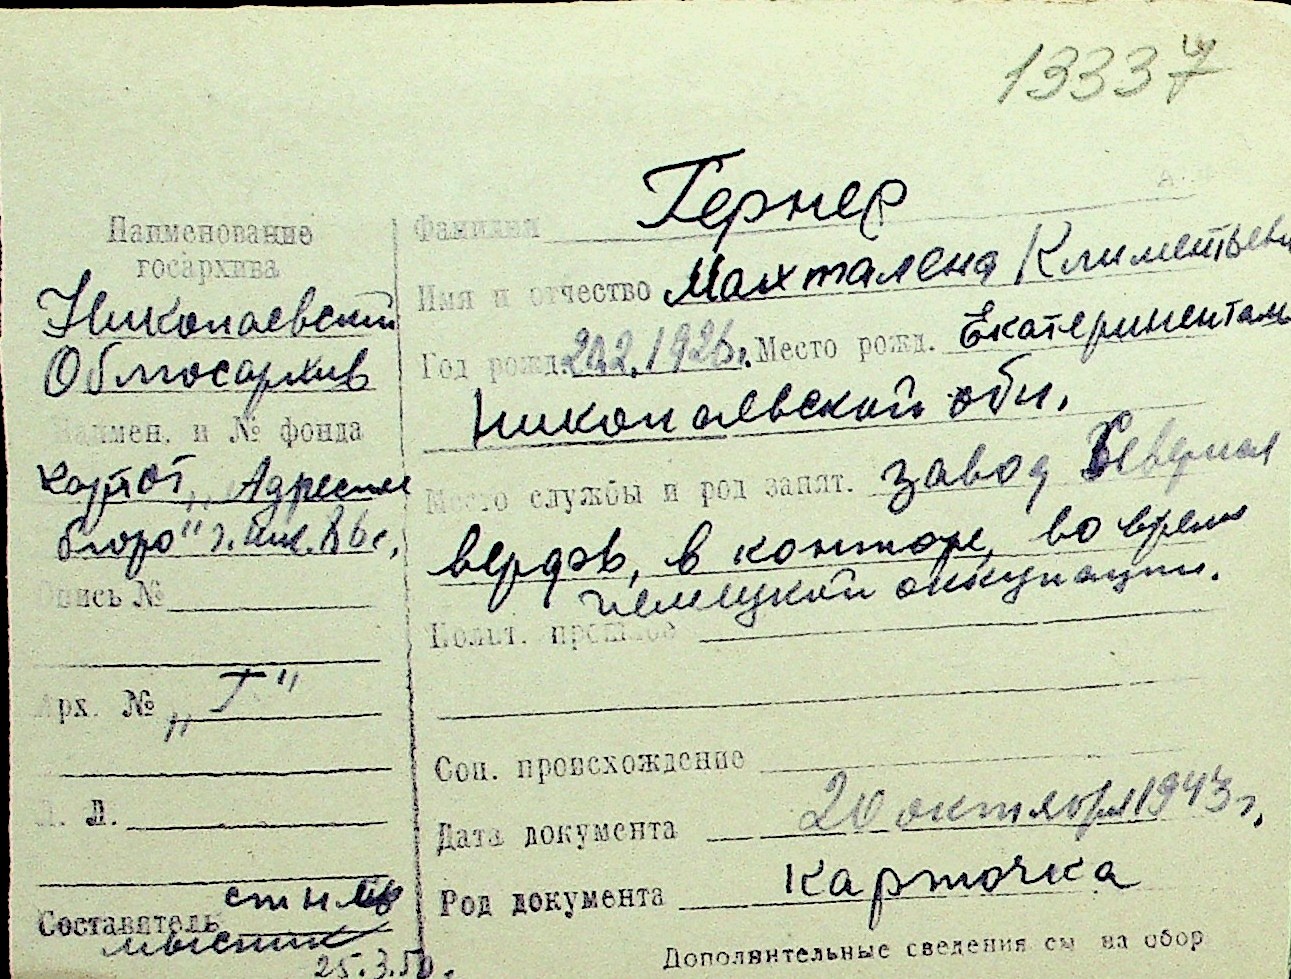 13337
Наименование
госархива
Николаевский
Облгосархив
Наимен. и № фонда
картот. „Адресное
бюро" г.
Опись №
Арх. № „Г."
Л. Л.
Составитель ст н
25.3.50.
Фамилия Гернер
Имя и отчество Махталена Климентьевн
Год рожд. 20.2.1926г. Место рожд. Екатериненталь
Николаевской обл.
Место службы и род занят. завод Северная
верфь, в конторе, во время
немецкой оккупации.
Полит. прошлое
Соц. происхождение
Дата документа 20 октября 1943 г.
Род документа карточка
Дополнительные сведения см на обор